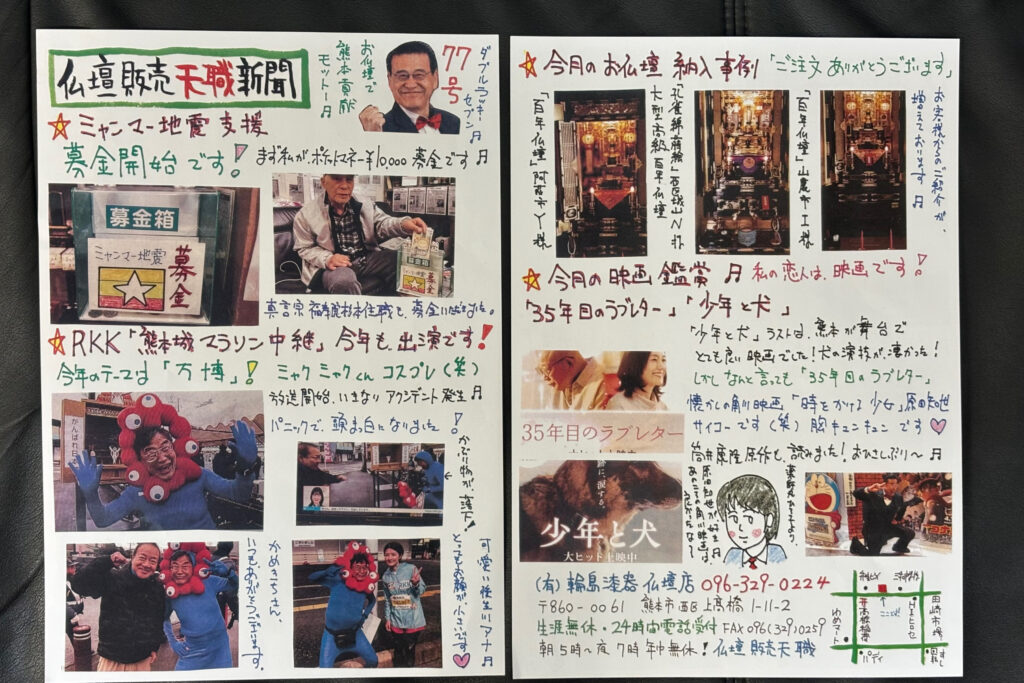 仏壇販売天職新聞
お仏壇で
熊本貢献
モットー♬
77号
ダブルラッキーセブン♬
☆ミャンマー地震支援
募金開始です!
まず私がポケットマネー¥10,000募金です♬
募金箱
ミャンマー地震
募金
募金箱
募金
☆RKK「熊本城マラソン中継」今年も出演です!
今年のテーマは「万博」!
ミャクミャクくんコスプレ(笑)
放送開始、いきなりアクシデント発生♬
パニックで、頭ま白になりました!
かぶり物が、落下!
がんばれ
かめきちさん、
いつもありがとうございます。
可愛い後生川アナ♬
とってもお顔が小いです♡
☆今月のお仏壇納入事例「ご注文ありがとうございます」
お客様からのご紹介が、
増えております♬
「百年仏壇」山鹿市I様
大型高級百年仏壇
「百年仏壇」阿蘇市Y様
☆今月の映画鑑賞♬私の恋人は、映画です!
「35年目のラブレター」「少年と犬」
「少年と犬」ラストは、熊本が舞台で
とても良い映画でした!犬の演技が、凄かった!
しかしなんと言っても「35年目のラブレター」
懐かしの角川映画「時をかける少女」原田知世
サイコーです(笑)胸キュンキュンです♡
筒井康隆原作も、読みました!おひさしぶり〜♬
35年目のラブレター
少年と犬
大ヒット上映中
原田知世が、好き♬
(有)輪島漆器仏壇店 096-329-0224
〒860-0061 熊本市西区上高橋1-11-2
生涯無休・24時間電話受付 FAX096(329)0259
朝5時〜夜7時年中無休!仏壇販売天職
ここです
田崎市場
ゆめマート